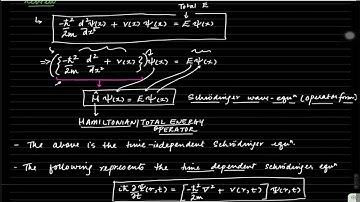 Total E
-ħ²/2m d²/dx² Ψ(x) + V(x) Ψ(x) = E Ψ(x)
⇒ {-ħ²/2m d²/dx² + V(x)} Ψ(x) = E Ψ(x)
Ĥ Ψ(x) = E Ψ(x) Schrödinger wave-equⁿ (operator form)
HAMILTONIAN/TOTAL ENERGY
OPERATOR
- The above is the time-independent Schrödinger equⁿ.
- The following represents the time dependent Schrödinger equⁿ
iħ ∂Ψ(r,t)/∂t = [-ħ²/2m ∇² + V(r,t)] Ψ(r,t)